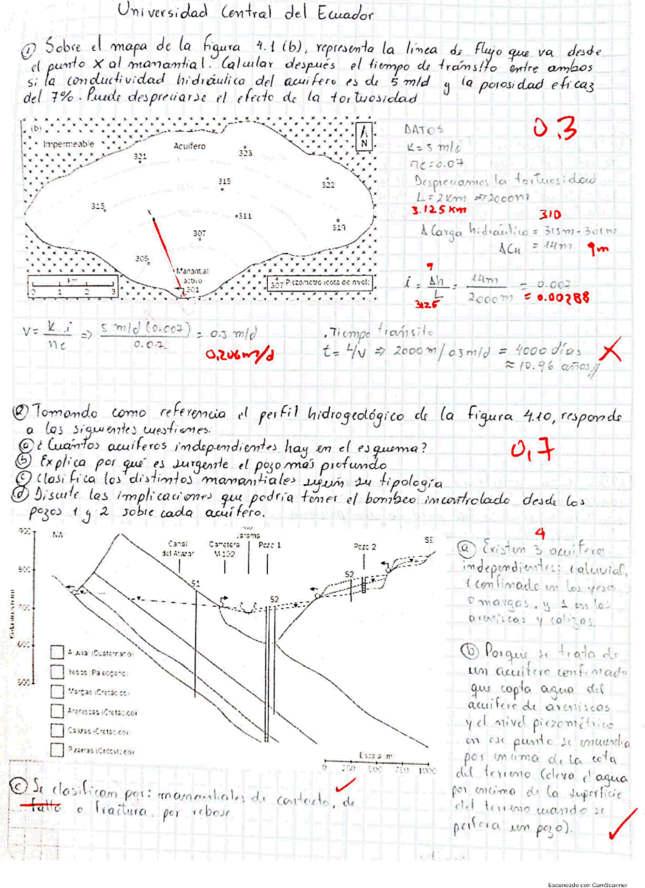 Universidad Central del Ecuador
① Sobre el mapa de la figura 4.1 (b), representa la línea de flujo que va desde
el punto X al manantial. Calcular después el tiempo de tránsito entre ambos
si la conductividad hidráulica del acuífero es de 5 m/d y la porosidad eficaz
del 7%. Puede despreciarse el efecto de la tortuosidad
(b)
Impermeable
Acuífero
N
321
323
315
322
313
311
307
319
306
Manantial
activo
301
km
0 1 2 3
307 Piezómetro (cota de nivel)
DATOS
0.3
K= 5 m/d
ne=0.07
Despreciamos la tortuosidad
L= 2km => 2000m
3.125 km
310
Δ Carga hidráulico = 315m - 301m
ΔCH = 14m 9m
i = Δh / L = 14m / 2000m = 0.007
9
3125
= 0.00288
V = K.i / ne => 5 m/d (0.007) / 0.07 = 0.5 m/d
0,206 m/d
. Tiempo tránsito
t= L/v => 2000m / 0.5m/d = 4000 días
≈ 10.96 años//
② Tomando como referencia el perfil hidrogeológico de la figura 4.10, responde
a las siguientes cuestiones:
0,7
ⓐ ¿Cuántos acuíferos independientes hay en el esquema?
ⓑ Explica por qué es surgente el pozo más profundo
ⓒ Clasifica los distintos manantiales según su tipología
ⓓ Discute las implicaciones que podría tener el bombeo incontrolado desde los
pozos 1 y 2 sobre cada acuífero.
900
NW
Canal
del Atazar
Carretera
M-102
Jarama
Pozo 1
Pozo 2
SE
S1
S2
S2
800
700
600
500
Aluvial (Cuaternario)
Yesos (Paleógeno)
Margas (Cretácico)
Areniscas (Cretácico)
Calizas (Cretácico)
Pizarras (Ordovícico)
Escala m
0 250 500 750 1000
4
ⓐ Existen 3 acuíferos
independientes: 1 aluvial,
1 confinado en los yesos
o margas, y 1 en las
areniscas y calizas.
ⓑ Porque se trata de
un acuífero confinado
que capta agua del
acuífero de areniscas
y el nivel piezométrico
en ese punto se encuentra
por encima de la cota
del terreno (eleva el agua
por encima de la superficie
del terreno cuando se
perfora un pozo).
ⓒ Se clasifican por: manantiales de contacto, de
falla o fractura, por rebose
Escaneado con CamScanner